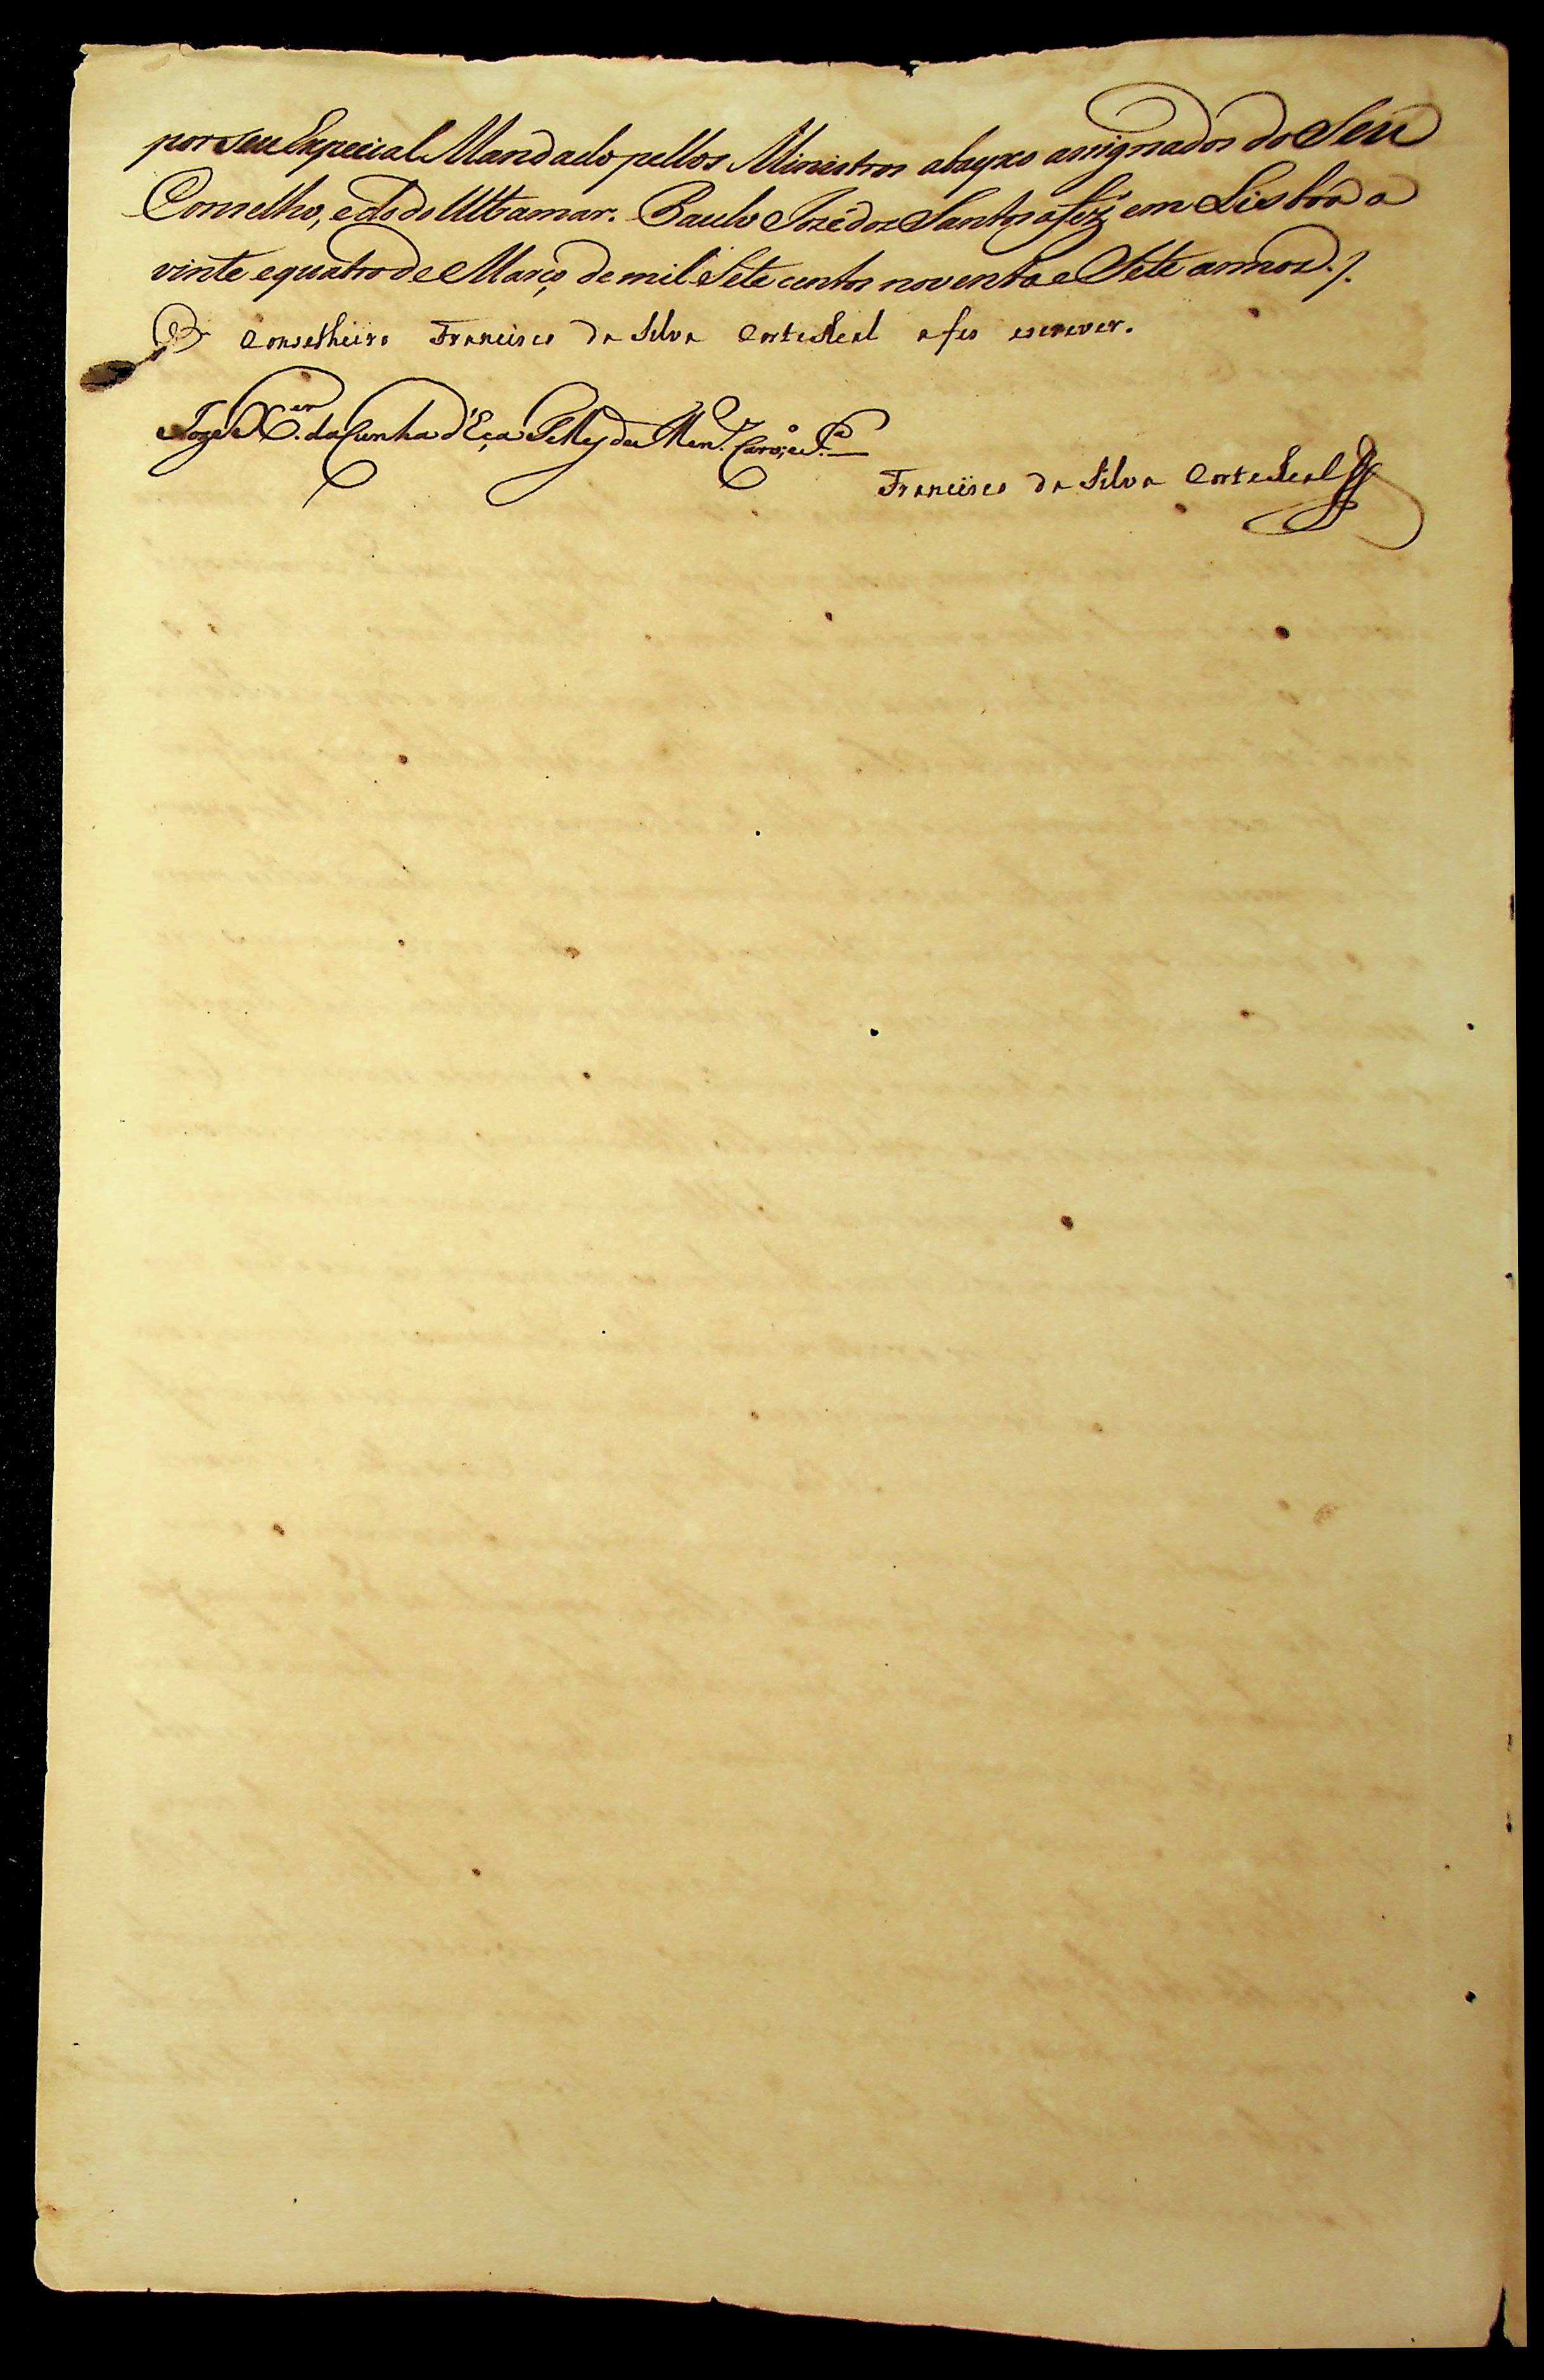 por Seu Expecial Mandado pellos Ministros abayxo assignados do Seu
Conselho, e do do Ultramar. Paulo Jozé dos Santos a fez em Lisboa a
vinte e quatro de Março de mil Sete centos noventa e Sete annos.
O Conselheiro Francisco da Silva CorteReal a fes escrever.
Joze X.er da Cunha d'Eça Telles de Men.
Francisco da Silva CorteReal